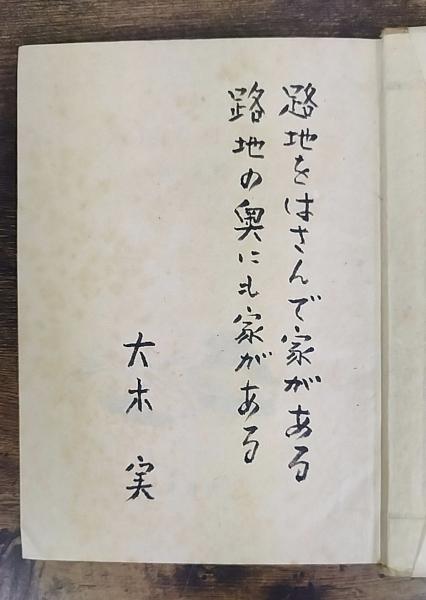 路地をはさんで家がある
路地の奥にも家がある
大木 実